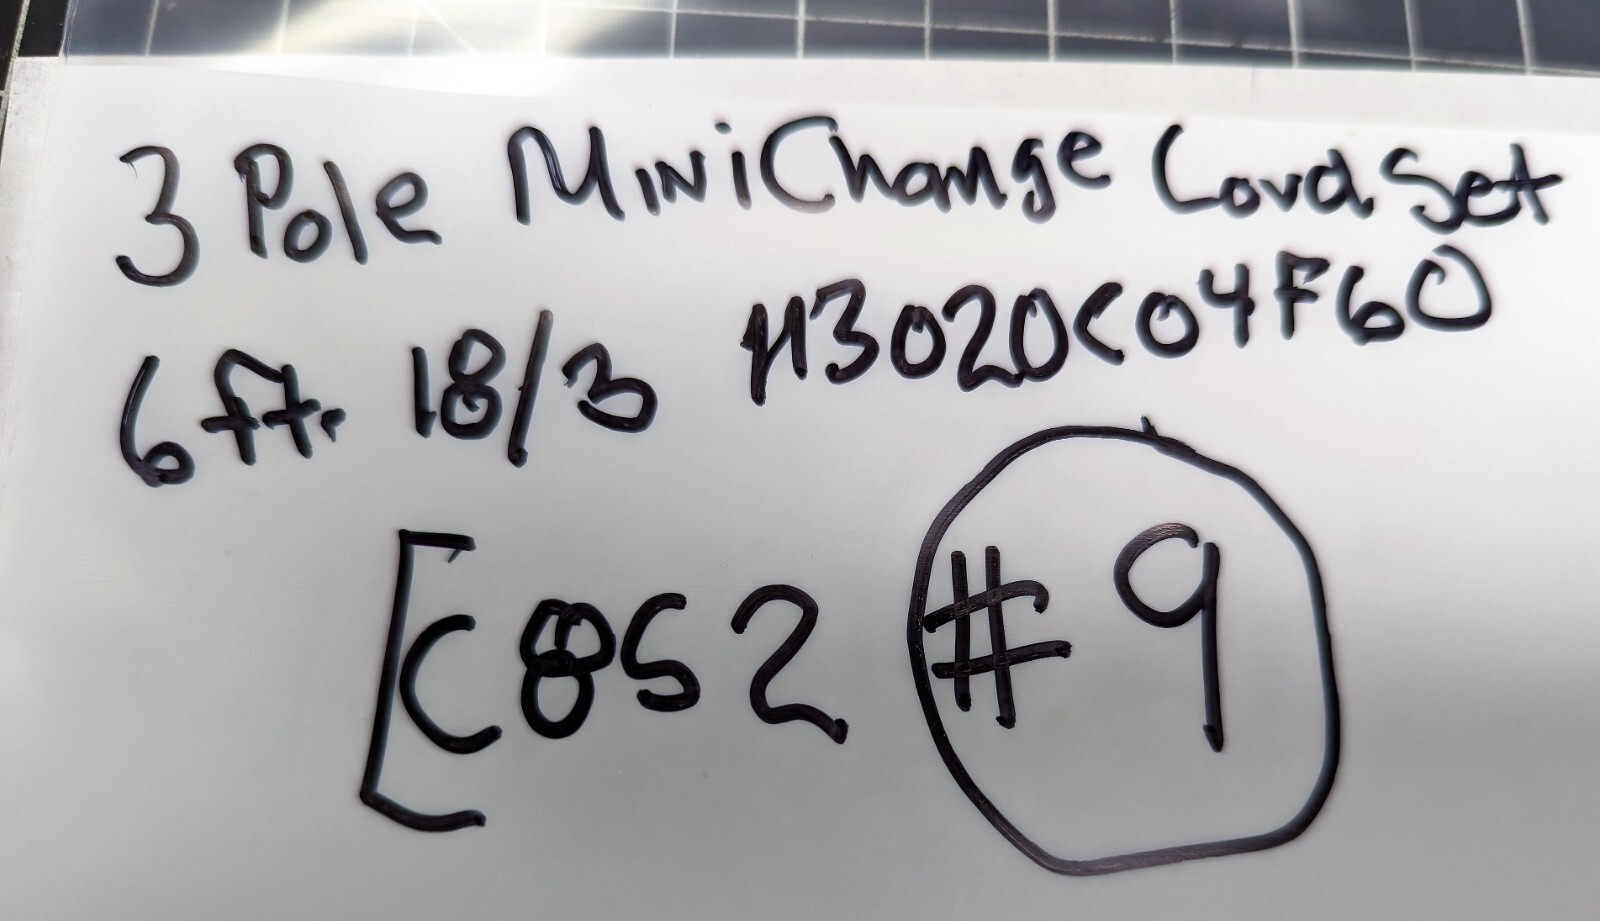 3 Pole MiniChange Cord Set
6 ft. 18/3 113020C04F60
[C852 #9